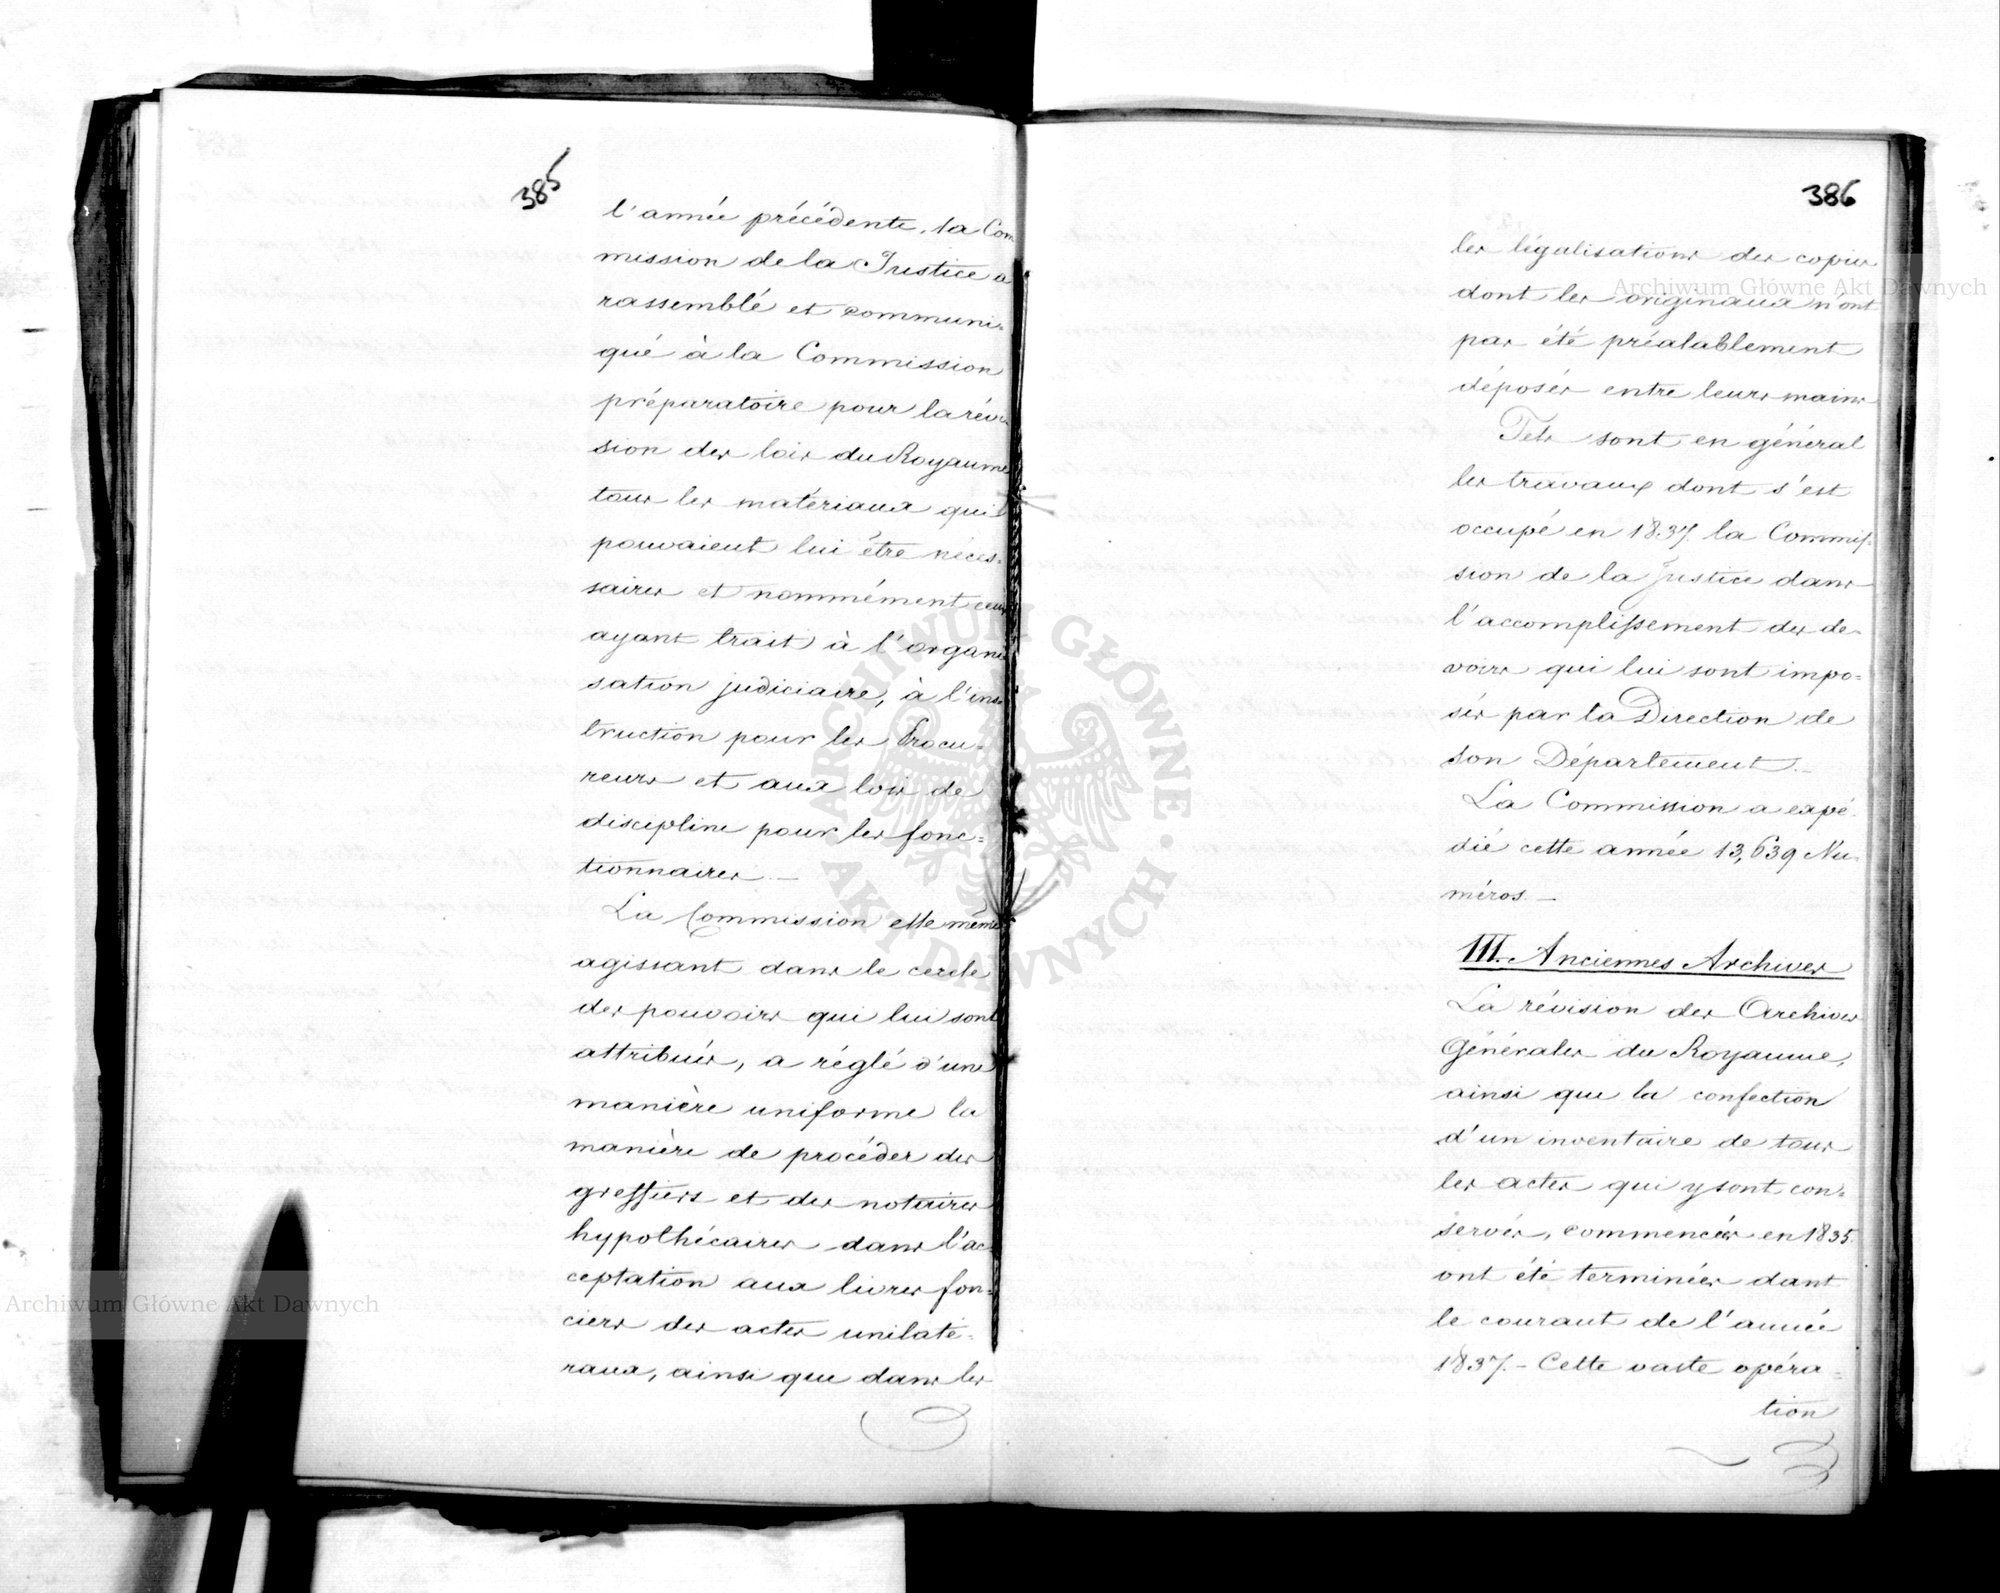 385
l'année précédente, la Com
mission de la Justice a
rassemblé et communi=
qué à la Commission
préparatoire pour la révi
sion des lois du Royaume
tous les matériaux qui
pouvaient lui être néces=
saires et nommément ceux
ayant trait à l'organi
sation judiciaire, à l'ins
truction pour les Procu=
reurs et aux lois de
discipline pour les fonc=
tionnaires. —
La Commission elle même
agissant dans le cercle
des pouvoirs qui lui sont
attribués, a réglé d'une
manière uniforme la
manière de procéder des
greffiers et des notaires
hypothécaires dans l'ac
ceptation aux livres fon=
ciers des actes unilaté=
raux, ainsi que dans les
386
les légalisations des copies
dont les originaux n'ont
pas été préalablement
déposés entre leurs mains
Tels sont en général
les travaux dont s'est
occupé en 1837 la Commis=
sion de la Justice dans
l'accomplissement des de=
voirs qui lui sont impo=
sés par la Direction de
son Département. —
La Commission a expé=
dié cette année 13,639 Nu=
méros. —
III. Anciennes Archives
La révision des Archives
Générales du Royaume,
ainsi que la confection
d'un inventaire de tous
les actes qui y sont con=
servés, commencées en 1835.
ont été terminées dant
le courant de l'année
1837. — Cette vaste opéra=
tion
Archiwum Główne Akt Dawnych
Archiwum Główne Akt Dawnych
ARCHIWUM GŁÓWNE · AKT DAWNYCH ·